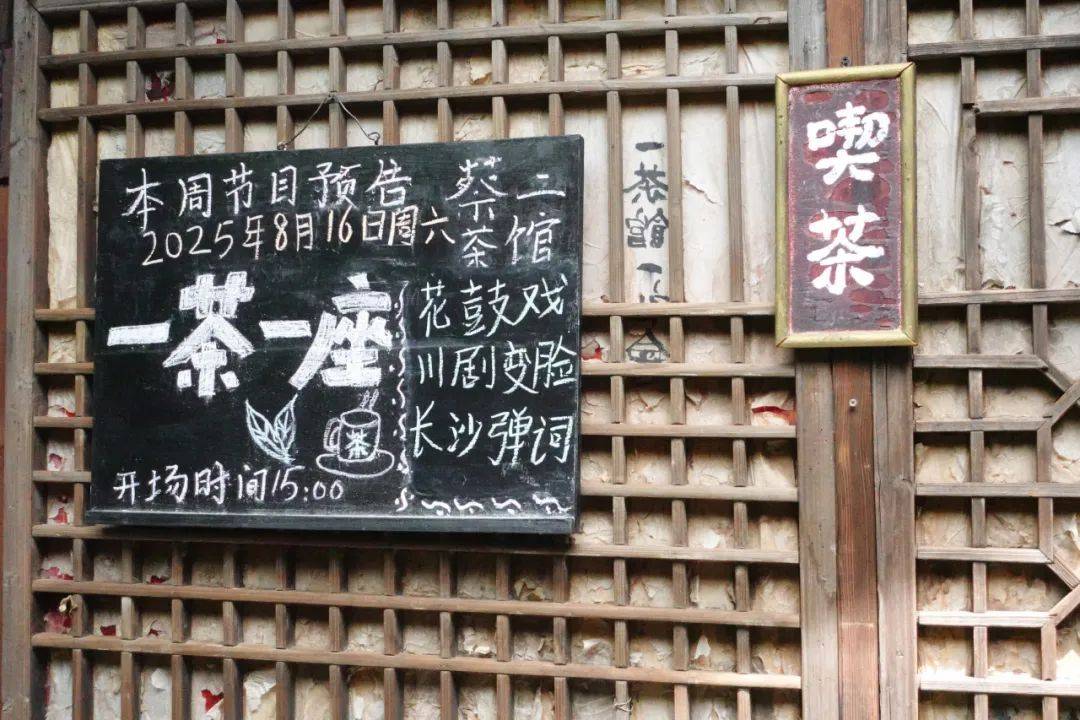 本周节目预告
2025年8月16日周六
蔡二
茶馆
一茶一座
花鼓戏
川剧变脸
长沙弹词
茶
开场时间15:00
喫茶